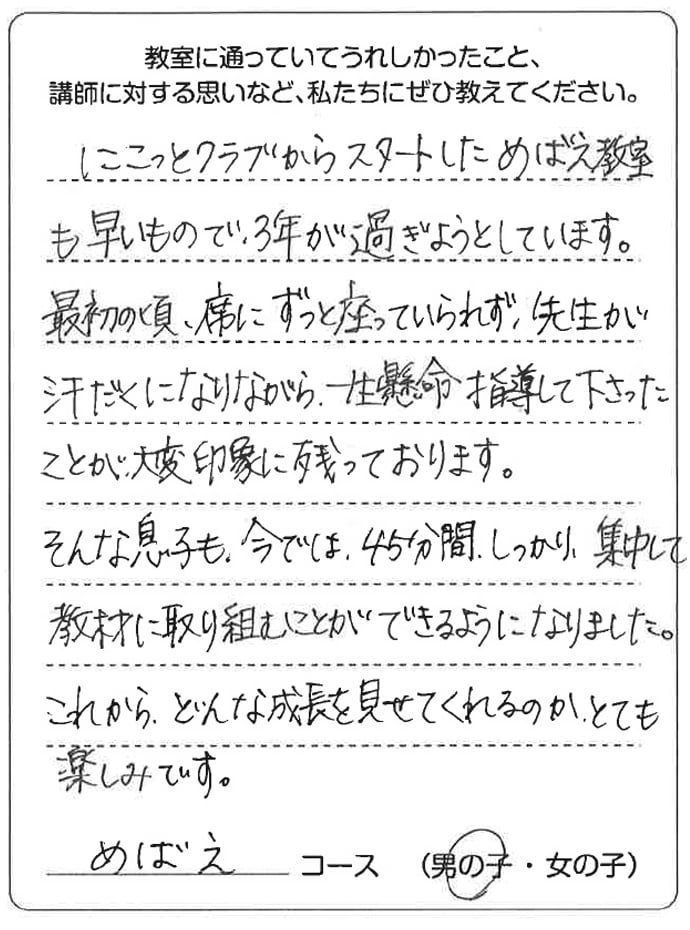 教室に通っていてうれしかったこと、
講師に対する思いなど、私たちにぜひ教えてください。
にこっとクラブからスタートしためばえ教室
も早いもので、3年が過ぎようとしています。
最初の頃、席にずっと座っていられず、先生が
汗だくになりながら、一生懸命指導して下さった
ことが、大変印象に残っております。
そんな息子も、今では、45分間、しっかり、集中して
教材に取り組むことができるようになりました。
これから、どんな成長を見せてくれるのか、とても
楽しみです。
めばえ コース (男の子・女の子)